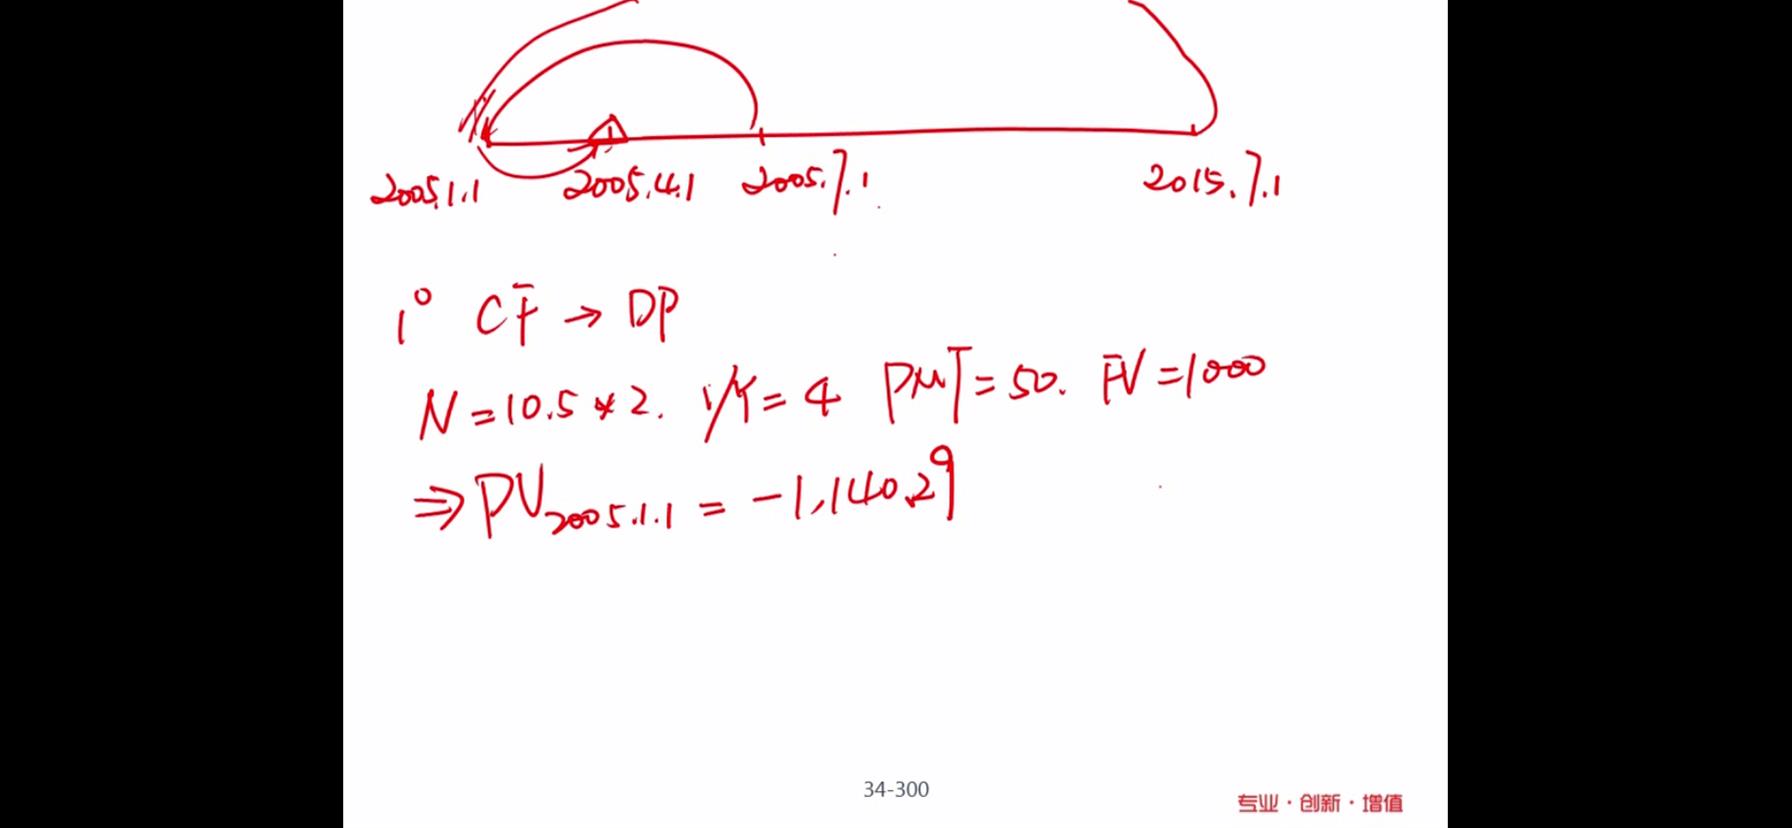 2005.1.1 2005.4.1 2005.7.1 2015.7.1
1° CF → DP
N = 10.5 * 2. I/Y = 4 PMT = 50. FV = 1000
⇒ PV2005.1.1 = -1,140.29
34-300
专业·创新·增值